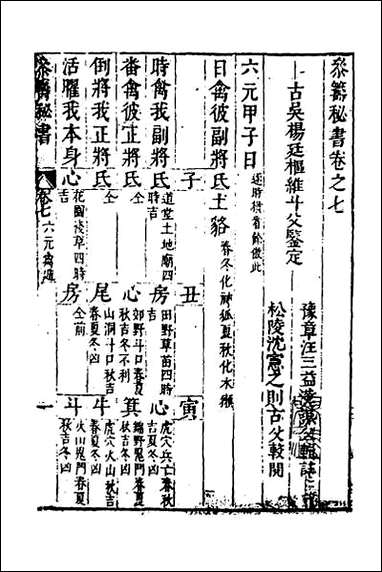 叅籌秘書卷之七
古吳楊廷樞維斗父鑒定
豫章汪三益
松陵沈憲之則古父較閱
六元甲子日
逐時横看餘倣此
日禽彼副將氐土貉
春冬化神狐夏秋化木猴
子 丑 寅
時禽我副將氐
道堂土地廟四時吉
房
田野草苗四時吉
心
虎穴兵亡春秋吉夏冬凶
番禽彼正將氐
仝
心
郊野斗口春夏秋吉冬不利
箕
鷂野鬼門春夏秋吉冬凶
倒將我正將氐
仝
尾
山澗斗口秋吉春夏冬凶
牛
虎穴火山秋吉春夏冬凶
活曜我本身心
花園淺草四時吉
房
仝前
斗
火山鬼門春夏秋吉冬凶
叅籌秘書
卷七
六元禽遁
一